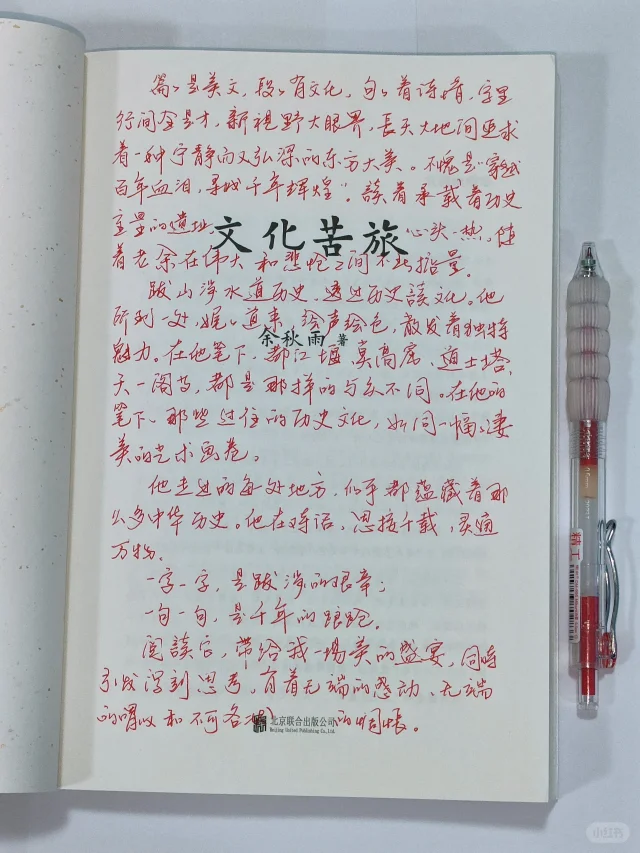 篇々是美文，段々有文化，句々着诗情，字里
行间全是才，新视野大眼界，長天大地间更求
着一种宁静而又弘深的东方大美。不愧是“穿越
百年血泪，寻找千年辉煌”。読着承载着历史
重量的遗址 心头一热，陪
文化苦旅
着老余在伟大和悲怆之间不断掂量。
跋山涉水道历史，透过历史談文化。他
所到一处，娓々道来，绘声绘色，散发着独特
余秋雨 著
魅力。在他笔下，都江堰、莫高窟、道士塔、
天一阁等，都是那样的与众不同。在他的
笔下，那些过往的历史文化，如同一幅々凄
美的艺术画卷。
他走过的每处地方，似乎都蕴藏着那
么多中华历史。他在对话，思接千载，灵通
万物。
一字一字，是跋涉的艰辛；
一句一句，是千年的踉跄。
阅読它，带给我一场美的盛宴，同时
引发深刻思考，有着无端的感动、无端
的喟叹和不可名状 的惆怅。
北京联合出版公司
Beijing United Publishing Co.,Ltd.
精工
小红书